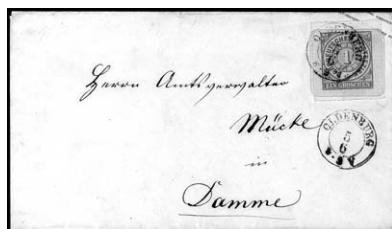 OLDENBURG
1
EIN GROSCHEN
Herrn Amtsverwalter
Mücke
OLDENBURG
5
6
in
Damme